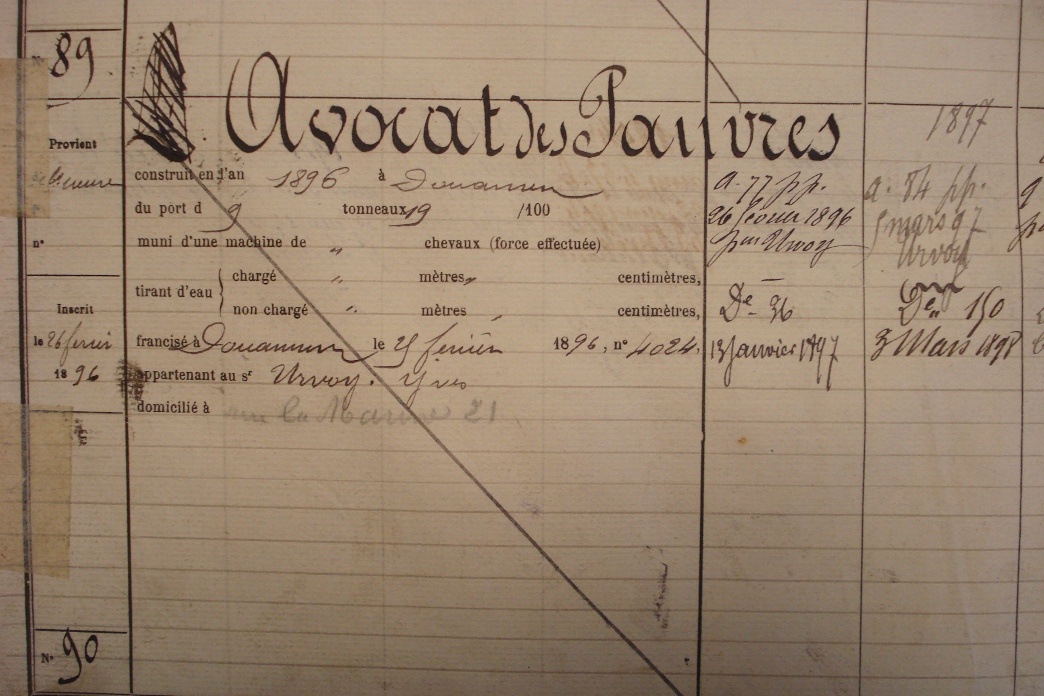 N° 89
Avocat des Pauvres
1897
Provient
n°
Inscrit
le 26 février
18 96
construit en l'an 1896 à Douarnenez
du port d 9 tonneaux 19 /100
muni d'une machine de " chevaux (force effectuée)
tirant d'eau { chargé " mètres " centimètres,
non chargé " mètres " centimètres,
francisé à Douarnenez le 25 février 1896, n° 4024,
appartenant au sr Urvoy. Yves
domicilié à rue la Marine 21
a. 77 pp.
26 février 1896
par Urvoy
De 36
13 Janvier 1897
a. 54 pp.
5 mars 97
Urvoy
De 150
3 Mars 1898
N° 90